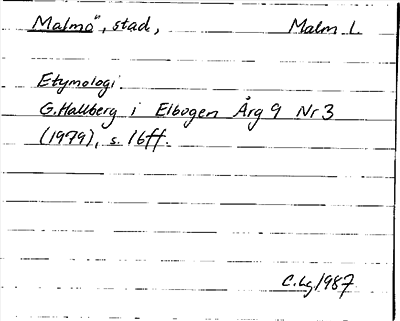 Malmö, stad, Malm L.
Etymologi
G. Hallberg i Elbogen Årg 9 Nr 3
(1979), s. 16ff.
C. Lg 1987